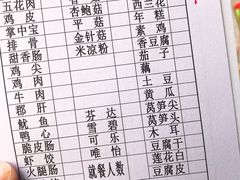 五花肉 杏鲍菇 西兰花
鸡皮 平菇 年糕
掌中宝 金针菇 素鸡
排骨 米凉粉 香豆腐
甜香肠 茄子
鸡尖 藕
鸡肉 土豆
牛肉 黄瓜
郡肝 芬达 莴笋尖
鱿鱼 雪碧 莴笋头
鸭心 可乐 木耳
脆皮肠 唯怡 豆腐干
虾饺 莲花白
火腿肠 就餐人数 豆腐皮